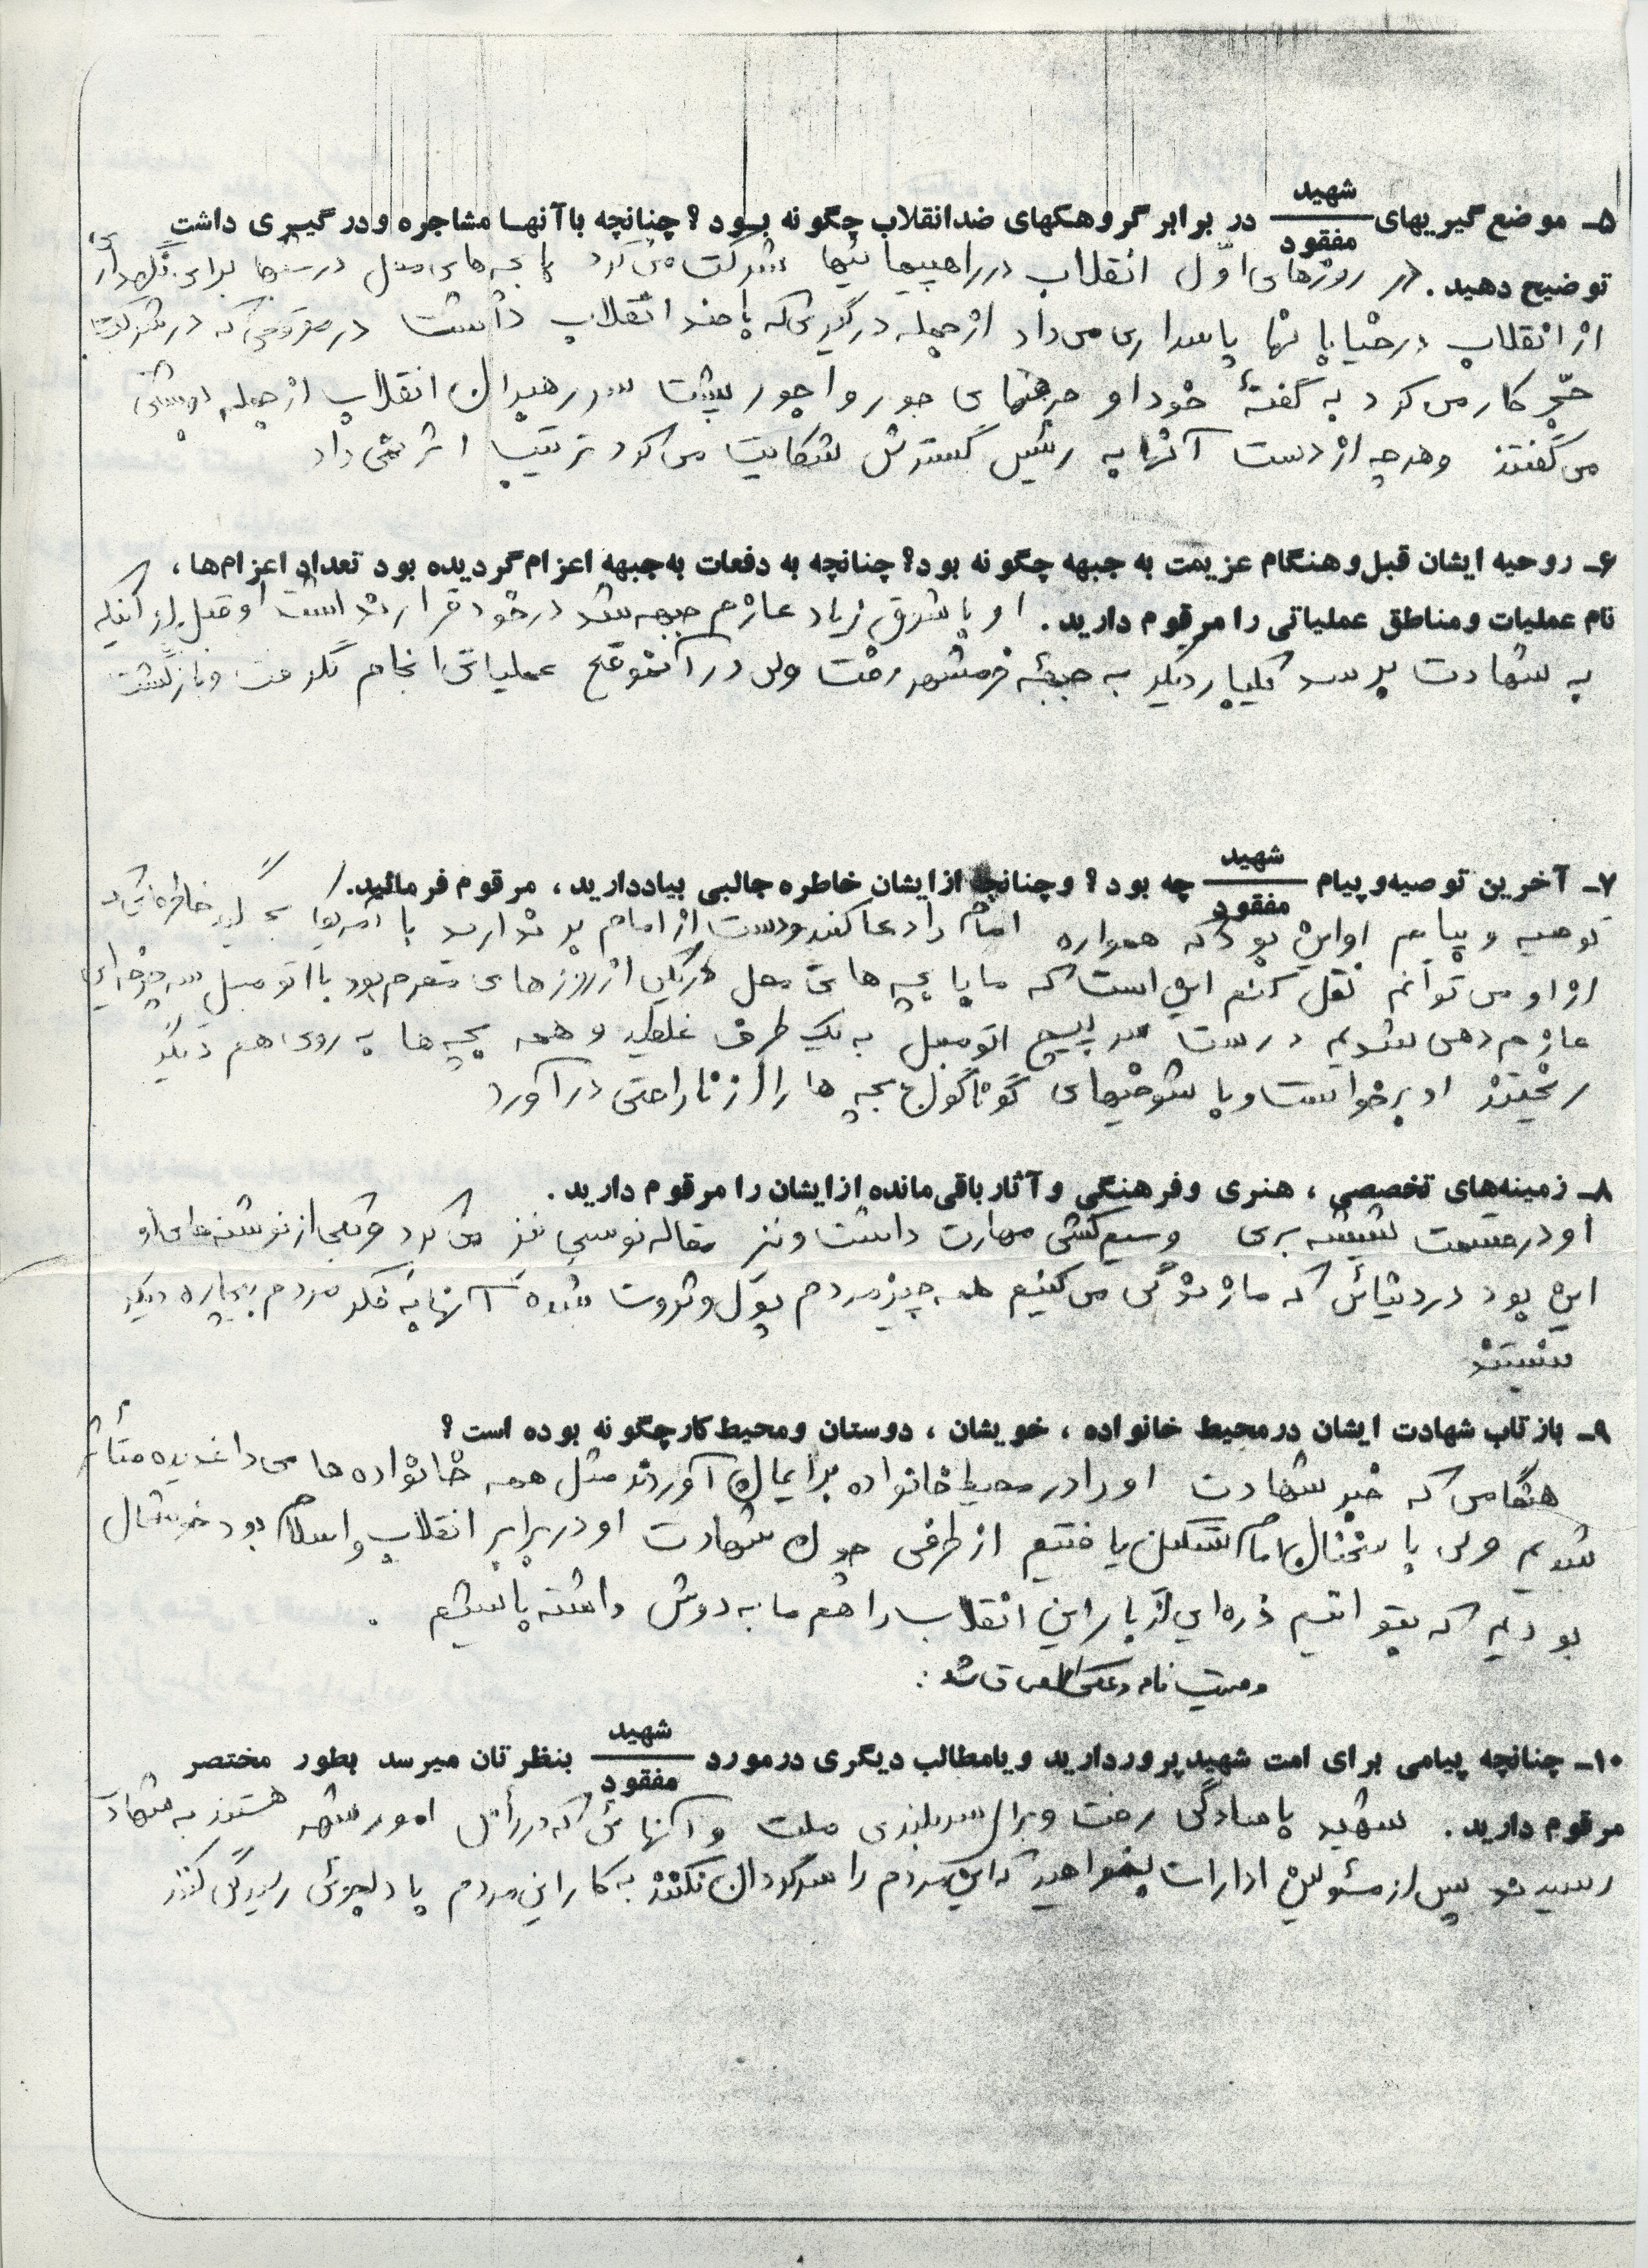 ۵ـ موضع گیریهای شهید / مفقود در برابر گروهکهای ضدانقلاب چگونه بود؟ چنانچه با آنها مشاجره و درگیری داشت
توضیح دهید. در روزهای اوّل انقلاب در راهپیمائیها شرکت می‌کرد با بچه‌های محل در شبها برای نگهداری
از انقلاب در خیابانها پاسداری می‌داد از جمله درگیری که با ضد انقلاب داشت در موقعی که در شرکت
کار می‌کرد به گفتهٔ خود او حرفهای جور واجور پشت سر رهبران انقلاب از جمله بهشتی
می‌گفتند و هرچه از دست آنها به رئیس گسترش شکایت می‌کرد ترتیب اثر نمی‌داد
۶ـ روحیه ایشان قبل و هنگام عزیمت به جبهه چگونه بود؟ چنانچه به دفعات به جبهه اعزام گردیده بود تعداد اعزام‌ها،
نام عملیات و مناطق عملیاتی را مرقوم دارید. او با شوق زیاد عازم جبهه شد در خود قرار نداشت او قبل از اینکه
به شهادت برسد یکبار دیگر به جبههٔ خرمشهر رفت ولی در آنموقع عملیاتی انجام نگرفت و بازگشت
۷ـ آخرین توصیه و پیام شهید / مفقود چه بود؟ و چنانچه از ایشان خاطره جالبی بیاد دارید، مرقوم فرمائید.
توصیه و پیام او این بود که همواره امام را دعا کنند و دست از امام بر ندارند با آمریکا خاطره‌ای که
از او می‌توانم نقل کنم این است که ما با بچه‌های محل در یکی از روزهای محرم بود با اتومبیل سه چرخه‌ای
عازم دهی شدیم درست سر پیچ اتومبیل به یک طرف غلطید و همه بچه‌ها به روی هم دیگر
ریختند او برخواست و با شوخیهای گوناگون بچه‌ها را از ناراحتی در آورد
۸ـ زمینه‌های تخصصی، هنری و فرهنگی و آثار باقی‌مانده از ایشان را مرقوم دارید.
او در قسمت شیشه بری و سیم کشی مهارت داشت و نیز مقاله نویسی نیز می‌کرد و یکی از نوشته‌های او
این بود در دنیائی که ما زندگی می‌کنیم همه چیز مردم پول و ثروت شده آنها به فکر مردم بیچاره دیگر
نیستند
۹ـ بازتاب شهادت ایشان در محیط خانواده، خویشان، دوستان و محیط کار چگونه بوده است؟
هنگامی که خبر شهادت او را در محیط خانواده برایمان آوردند مثل همه خانواده‌ها ی داغدیده متأثر
شدیم ولی با سخنان امام تسکین یافتیم از طرفی چون شهادت او در برابر انقلاب و اسلام بود خوشحال
بودیم که بتوانیم ذره‌ای از بار این انقلاب را هم ما به دوش داشته باشیم.
وصیت نامه و عکس
۱۰ـ چنانچه پیامی برای امت شهیدپرور دارید و یا مطالب دیگری در مورد شهید / مفقود بنظرتان میرسد بطور مختصر
مرقوم دارید. شهید با سادگی رفت و برای سربلندی ملت و آنهائی که در رأس امور شهر هستند به شهادت
رسیدند پس از مسئولین ادارات بخواهید که این مردم را سرگردان نکنند به کار این مردم با دلجوئی رسیدگی کنند